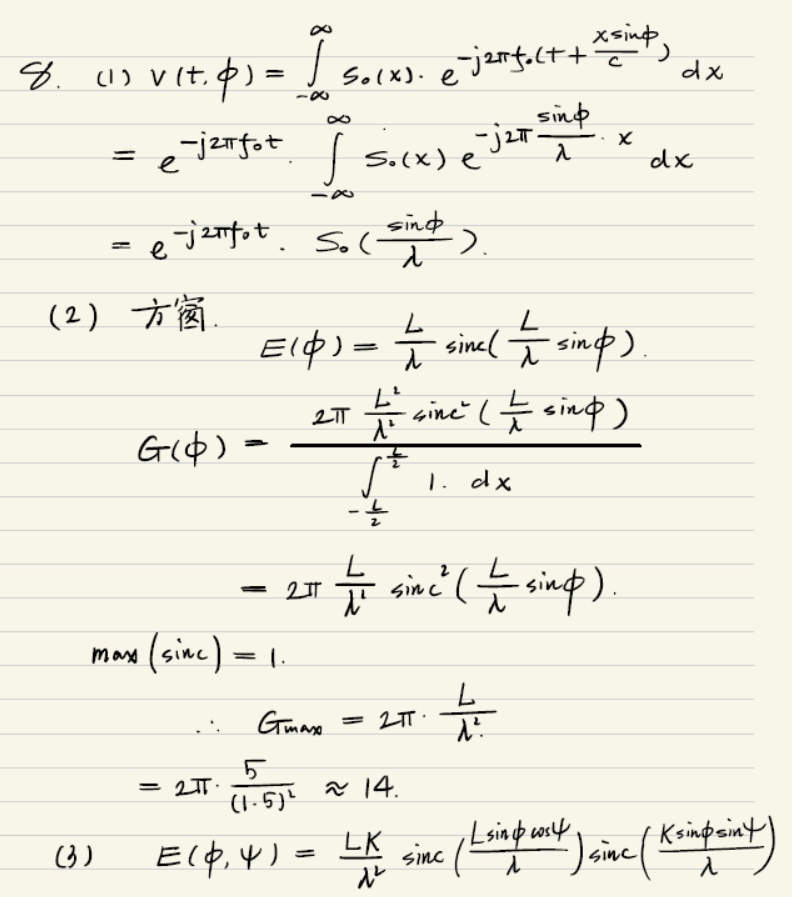 8. (1) V(t,φ) = ∫_{-∞}^{∞} s₀(x)· e^{-j2πf₀(t + \frac{x sinφ}{c})} dx
= e^{-j2πf₀t} · ∫_{-∞}^{∞} s₀(x) e^{-j2π \frac{sinφ}{λ} · x} dx
= e^{-j2πf₀t} · S₀(\frac{sinφ}{λ}).
(2) 方窗.
E(φ) = \frac{L}{λ} sinc(\frac{L}{λ} sinφ).
G(φ) = \frac{2π \frac{L²}{λ²} sinc²(\frac{L}{λ} sinφ)}{∫_{-\frac{L}{2}}^{\frac{L}{2}} 1. dx}
= 2π \frac{L}{λ²} sinc²(\frac{L}{λ} sinφ).
max (sinc) = 1.
∴ Gmax = 2π· \frac{L}{λ²}.
= 2π· \frac{5}{(1.5)²} ≈ 14.
(3) E(φ,ψ) = \frac{LK}{λ²} sinc(\frac{L sinφ cosψ}{λ}) sinc(\frac{K sinφ sinψ}{λ})